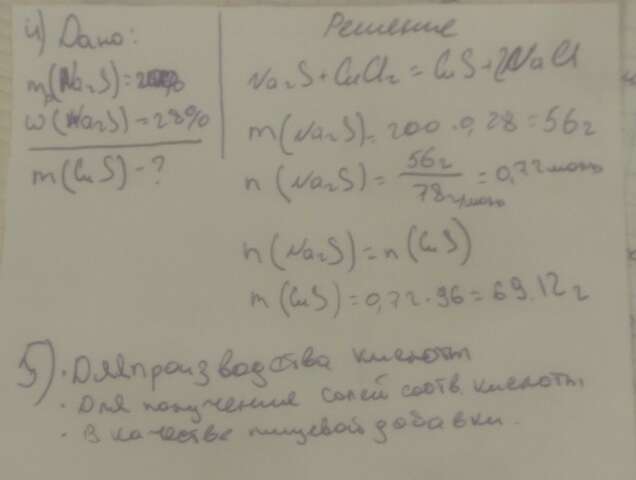 4) Дано:
m(Na2S)=200г
w(Na2S)=28%
m(CuS)-?
Решение
Na2S+CuCl2=CuS+2NaCl
m(Na2S)=200·0,28=56г
n(Na2S)=56г/78г/моль=0,72моль
n(Na2S)=n(CuS)
m(CuS)=0,72·96=69.12г
5)·Для производства кислоты
·Для получения солей соотв. кислоты
·В качестве пищевой добавки.